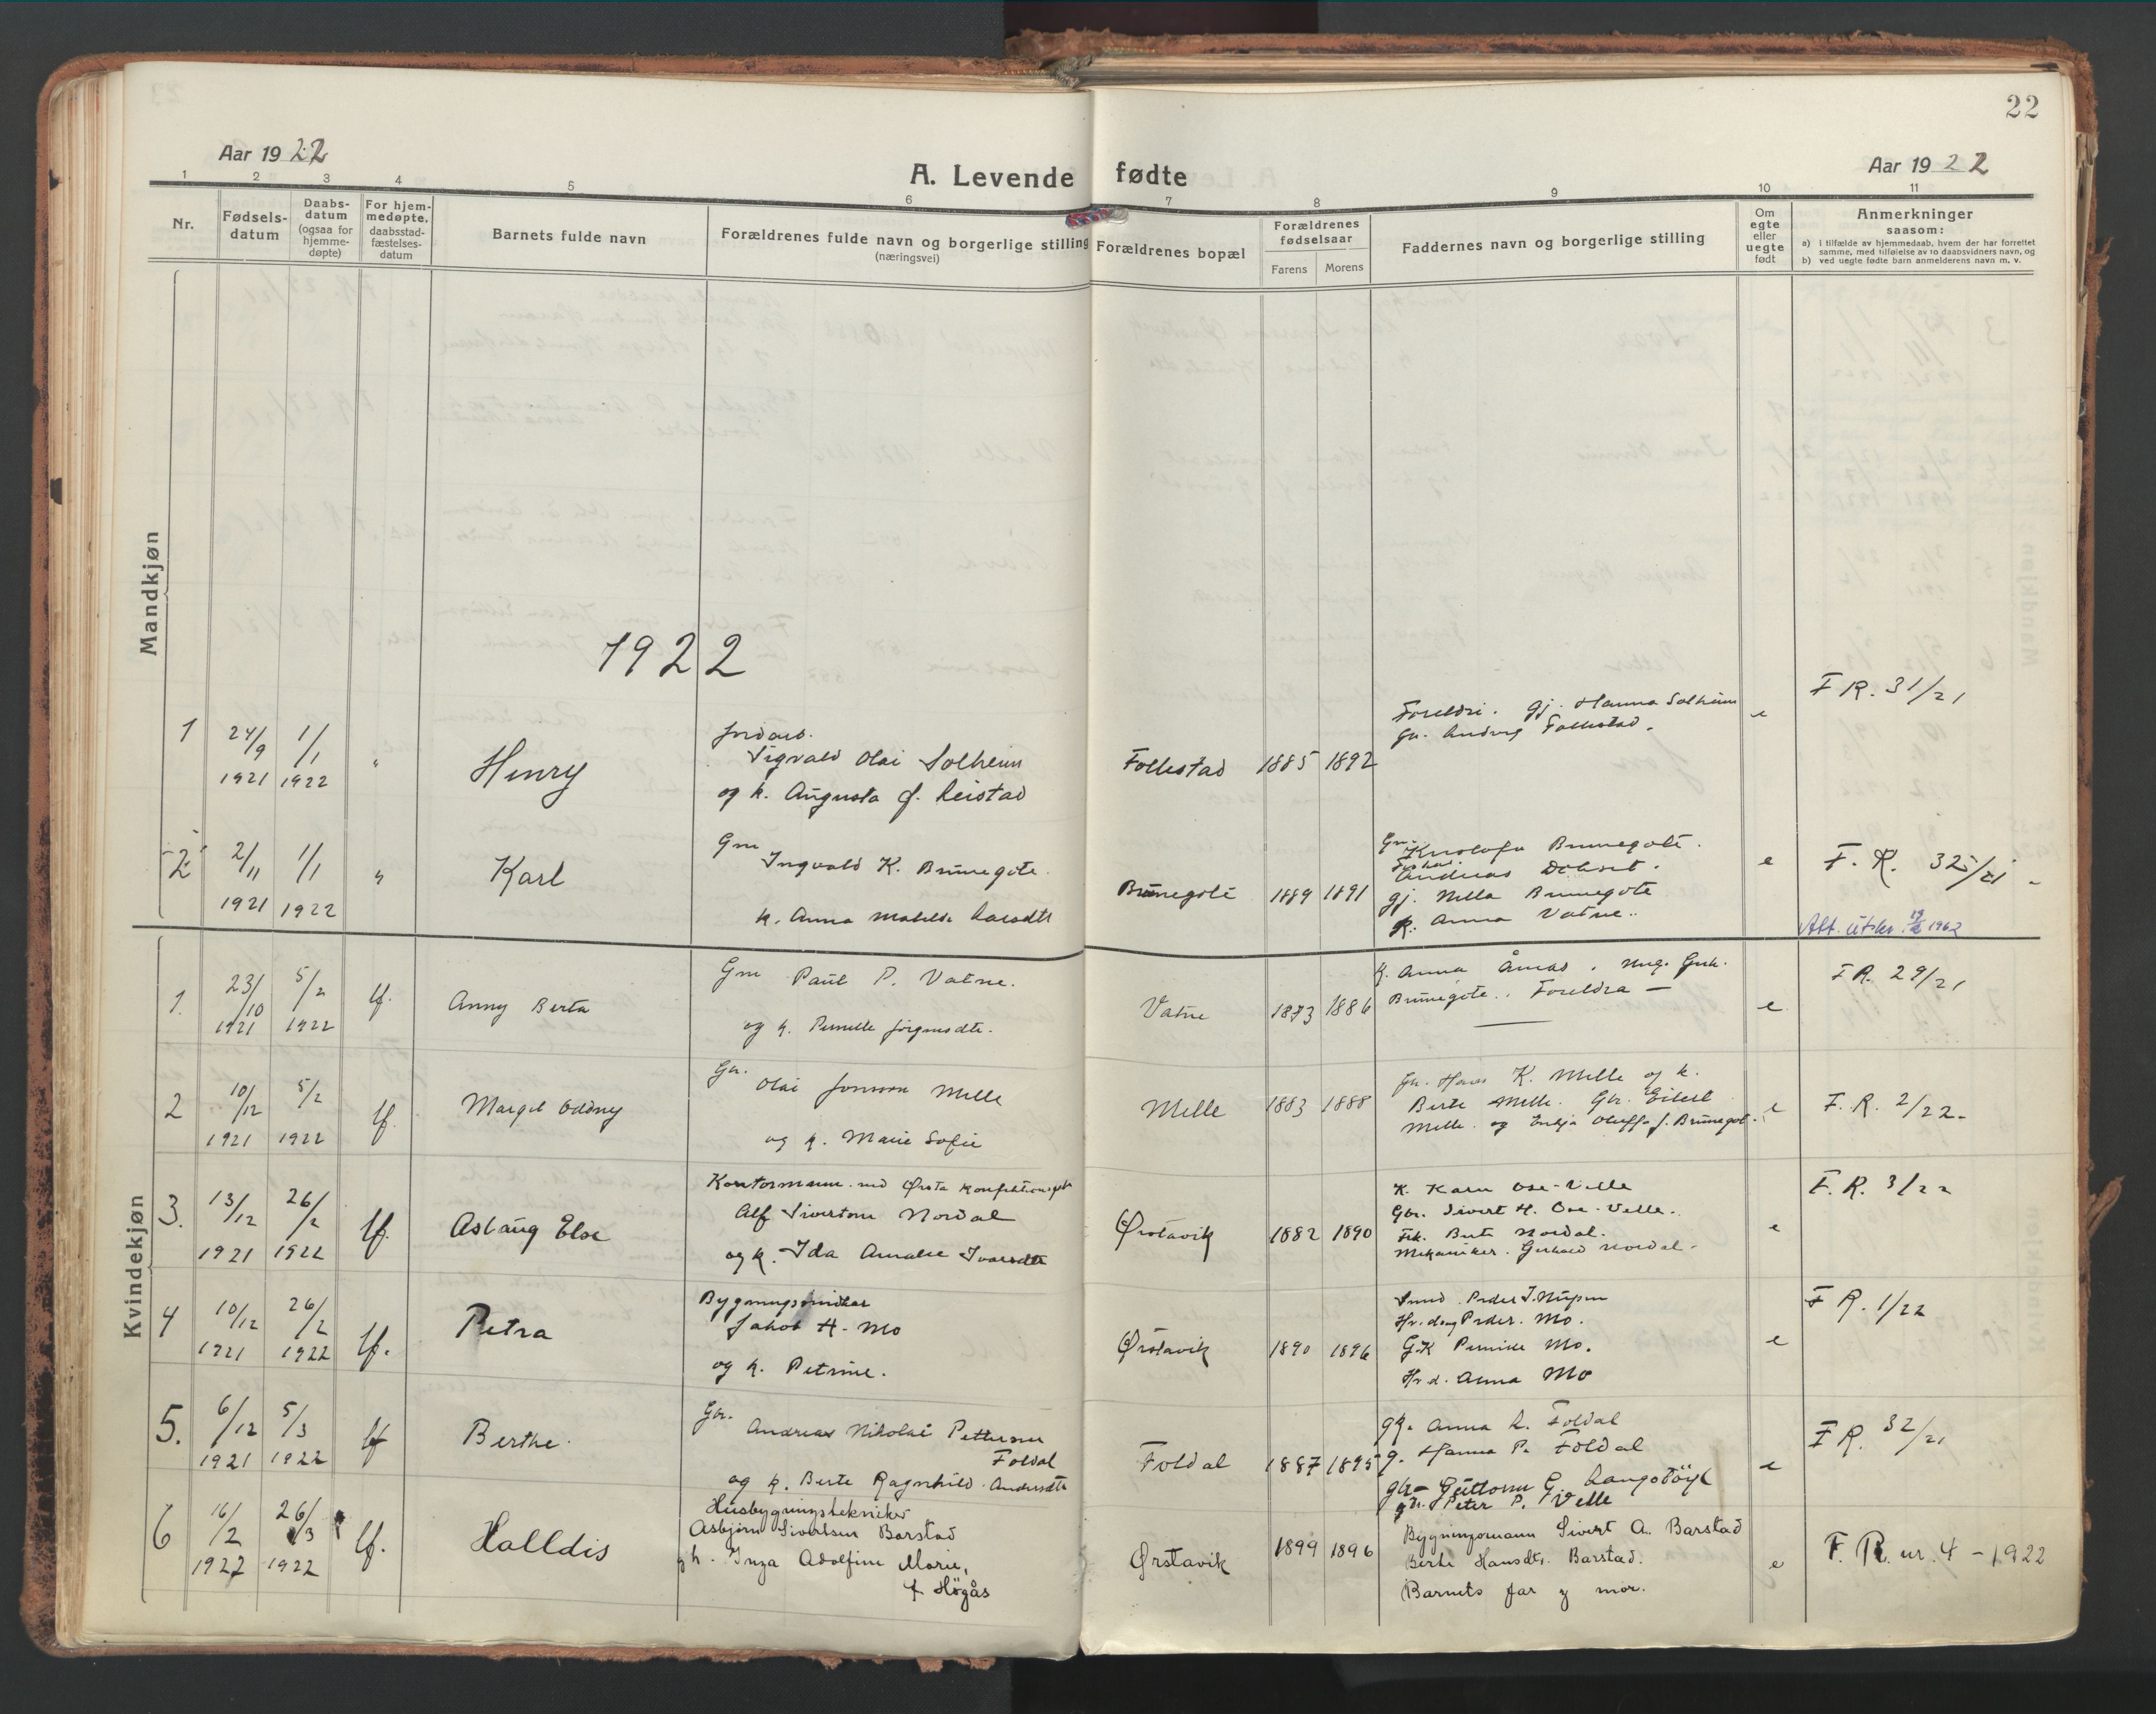 22
Aar 1922
Aar 1922
A. Levende fødte
1 2 3 4 5 6 7 8 9 10 11
Nr.
Fødsels-
datum
Daabs-
datum
(ogsaa for
hjemme-
døpte)
For hjem-
medøpte,
daabsstad-
fæstelses-
datum
Barnets fulde navn
Forældrenes fulde navn og borgerlige stilling
(næringsvei)
Forældrenes bopæl
Forældrenes
fødselsaar
Farens Morens
Faddernes navn og borgerlige stilling
Om
egte
eller
uegte
født
Anmerkninger
saasom:
a) i tilfælde av hjemmedaab, hvem der har forrettet
samme, med tilføielse av to daabsvidners navn, og
b) ved uegte fødte barn anmelderens navn m. v.
Mandkjøn
1922
1 24/9 1921 1/1 1922 "
Henry
Sigvald Olai Solheim
og k. Augusta f. Leistad
Follestad 1885 1892
Foreldri. gj. Hanna Solheim
Follestad.
e
F R. 31/21
2 2/11 1921 1/1 1922 "
Karl
Gm
Ingvald K. Brunegote
k. Anna Matilde Larsdtr
Brunegote 1889 1891
Gm. Brunegote.
Andreas
gj. Nella Brunegote
k. Anna Vatne..
e
F. R. 32/21
Att. utskr. 1962
Kvindekjøn
1. 23/10 1921 5/2 1922 lf.
Anny Berta
Gm Paul P. Vatne.
og k. Pernille Jørgensdtr.
Vatne 1873 1886
k. Anna Åmås. Ung.
Brunegote. Foreldra —
e
F R. 29/21
2 10/12 1921 5/2 1922 lf.
Margit Oddny
Gr. Olai Jonson Melle
og k. Marie Sofie
Melle 1883 1888
Gr. Hans K. Melle og k.
Berte Melle. Gr. Eilert
Melle. og Enkja Oluffa f. Brunegot.
e
F. R. 2/22-
3. 13/12 1921 26/2 1922 lf.
Aslaug Else
Kontormann ved Ørsta
Alf Sivertson Nordal
og k. Ida Amalie Ivarsdtr
Ørstavik 1882 1890
K. Karn Ose-Velle
Gbr. Sivert H. Ose-Velle.
Frk. Berte Nordal.
Mekaniker. Gerhard Nordal.
e
F. R. 3/22
4 10/12 1921 26/2 1922 lf.
Petra
Bygningssnidkar
Jakob H. Mo
og k. Petrine.
Ørstavik 1890 1896
Smed Peder J. Nupen
Peder. Mo.
G.K Pernille Mo.
Anna Mo
e
F R. 1/22
5. 6/12 1921 5/3 1922 lf
Berthe.
Gbr.
Andreas Nikolai Petterson
Foldal
og k. Berte Ragnhild Andersdtr
Foldal 1887 1895
gk. Anna L. Foldal
g. Hanna P. Foldal
gbr- Guttorm G. Langstöyl
gbr. Peter P. Velle
e
F R. 32/21
6 16/2 1922 26/3 1922 lf.
Halldis
Husbygningstekniker
Asbjørn Sivertsen Barstad
g h. Inga Adolfine Marie,
f. Högås
Ørstavik 1899 1896
Bygningsmann Sivert A. Barstad
Berte Hansdtr. Barstad.
Barnets far og mor.
e
F. R. nr. 4 - 1922